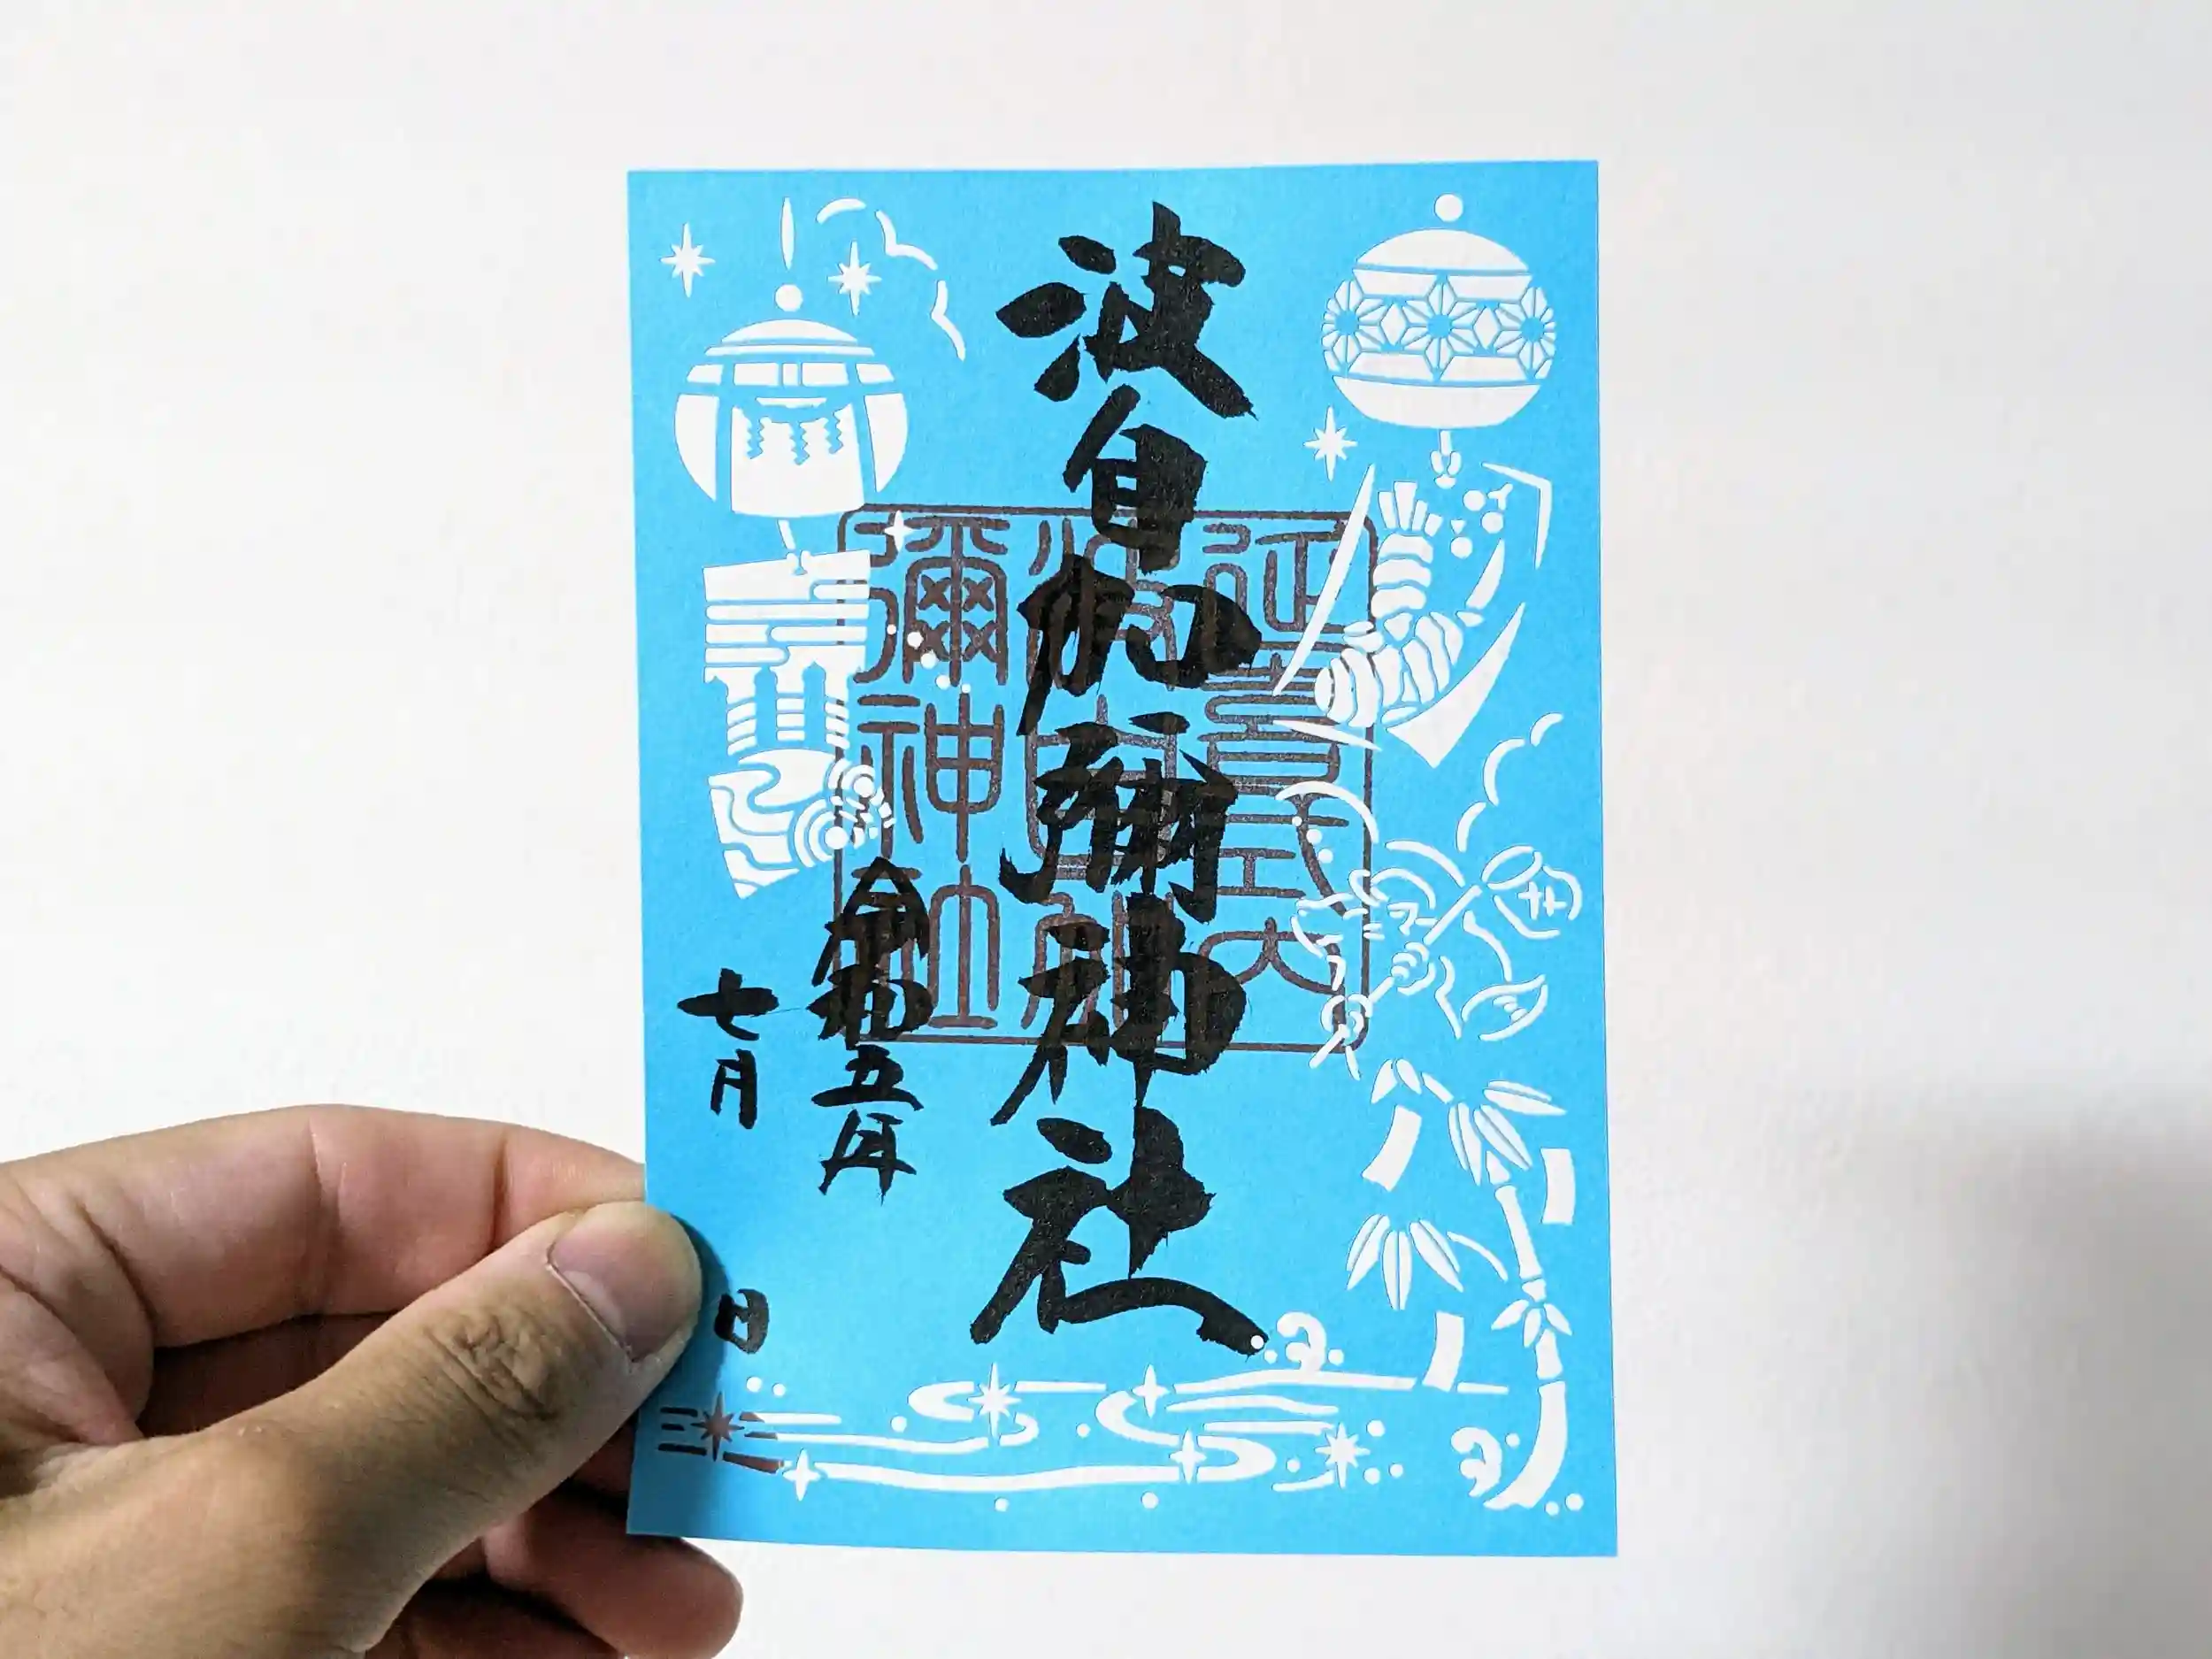 波自加彌神社
令和五年
七月
日
延喜式内
波自加
彌神社